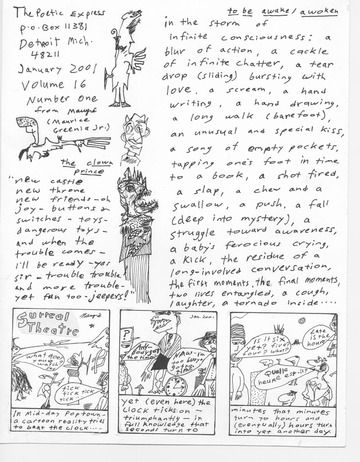 The Poetic Express
P.O. Box 11381
Detroit Mich.
48211
January 2001
Volume 16
Number One
from Maurg
(Maurice
Greenia Jr.)
the clown
prince
"new castle
new throne
new friends - oh
joy - buttons &
switches - toys -
dangerous toys -
and when the
trouble comes -
i'll be ready - yes
sir - trouble trouble
and more trouble -
yet fun too - jeepers!"
to be awake/awoken
in the storm of
infinite consciousness: a
blur of action, a cackle
of infinite chatter, a tear
drop (sliding) bursting with
love, a scream, a hand
writing, a hand drawing,
a long walk (barefoot),
an unusual and special kiss,
a song of empty pockets,
tapping one's foot in time
to a book, a shot fired,
a slap, a chew and a
swallow, a push, a fall
(deep into mystery), a
struggle toward awareness,
a baby's ferocious crying,
a kick, the residue of a
long-involved conversation,
the first moments, the final moments,
two lives entangled, a cough,
laughter, a tornado inside....
Surreal
Theatre
tick
tick tick
tick
In mid-day Poptown -
a cartoon reality tries
to beat the clock...
Jan. 2001
yet (even here) the
clock ticks on -
triumphantly - in
full knowledge that
seconds turn to
Is it six
late is
the hour
minutes that minutes
turn to hours and
(eventually) hours turn
into yet another day.